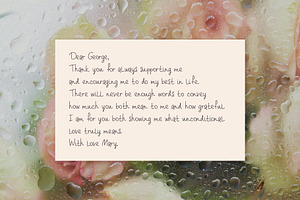 Dear George,
Thank you for always supporting me
and encouraging me to do my best in life.
There will never be enough words to convey
how much you both mean to me and how grateful
I am for you both showing me what unconditional
love truly means.
With Love Mary.